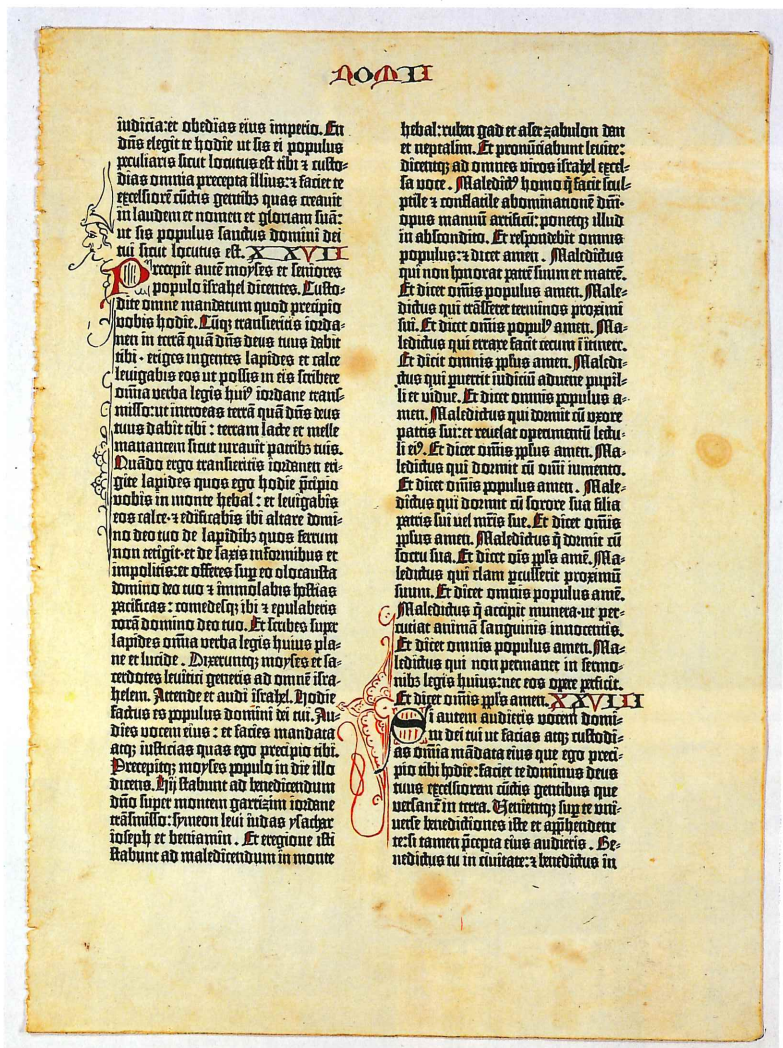 NOMII
iudicia: et obedias eius imperio. En
dn̄s elegit te hodie ut sis ei populus
peculiaris sicut locutus est tibi ⁊ custo-
dias omnia precepta illius: ⁊ faciet te
excelsiorē cūctis gentibꝫ quas creauit
in laudem et nomen et gloriam suā:
ut sis populus sanctus domini dei
tui sicut locutus est. XXVII
Precepit autē moyses et seniores
populo israhel dicentes. Custo-
dite omne mandatum quod precipio
vobis hodie. Cūqꝫ transieritis iorda-
nen in terrā quā dn̄s deus tuus dabit
tibi · eriges ingentes lapides et calce
leuigabis eos ut possis in eis scribere
om̄ia verba legis huiꝰ iordane trans-
misso: ut introeas terrā quā dn̄s deus
tuus dabit tibi: terram lacte et melle
manantem sicut iurauit patribꝫ tuis.
Quādo ergo transieritis iordanen eri-
gite lapides quos ego hodie p̄cipio
vobis in monte hebal: et leuigabis
eos calce · ⁊ edificabis ibi altare domi-
no deo tuo de lapidibꝫ quos ferrum
non tetigit · et de saxis informibus et
impolitis: et offeres suꝑ eo olocausta
domino deo tuo ⁊ immolabis hostias
pacificas: comedesqꝫ ibi ⁊ epulaberis
corā domino deo tuo. Et scribes super
lapides om̄ia verba legis huius pla-
ne et lucide. Dixeruntqꝫ moyses et sa-
cerdotes leuitici generis ad omnē isra-
helem. Attende et audi israhel. Hodie
factus es populus domini dei tui. Au-
dies vocem eius: et facies mandata
atqꝫ iusticias quas ego precipio tibi.
Precepitqꝫ moyses populo in die illo
dicens. Hij stabunt ad benedicendum
dn̄o super montem garizim iordane
trāsmisso: symeon leui iudas ysachar
ioseph et beniamin. Et eregione isti
stabunt ad maledicendum in monte
hebal: ruben gad et aser zabulon dan
et neptalim. Et pronūciabunt leuite:
dicentqꝫ ad omnes viros israhel excel-
sa voce. Maledictꝰ homo q̄ facit scul-
ptile ⁊ conflatile abominationē dn̄i ·
opus manuū artificū: ponetqꝫ illud
in abscondito. Et respondebit omnis
populus: ⁊ dicet amen. Maledictus
qui non honorat patrē suum et matrē.
Et dicet om̄is populus amen. Male-
dictus qui trāsfert terminos proximi
sui. Et dicet om̄is populꝰ amen. Ma-
ledictus qui errare facit cecum ī itinere.
Et dicit omnis pp̄lus amen. Maledi-
ctus qui puertit iudiciū aduene pupil-
li et vidue. Et dicet omnis populus a-
men. Maledictus qui dormit cū vxore
patris sui: et reuelat operimentū lectu-
li eiꝰ. Et dicet om̄is pp̄lus amen. Ma-
ledictus qui dormit cū om̄i iumento.
Et dicet om̄is populus amen. Male-
dictus qui dormit cū sorore sua filia
patris sui uel mr̄is sue. Et dicet om̄is
pp̄lus amen. Maledictus q̄ dormit cū
socru sua. Et dicet oīs pp̄ls amē. Ma-
ledictus qui clam ꝑcusserit proximū
suum. Et dicet omnis populus amē.
Maledictus q̄ accipit munera · ut per-
cutiat animā sanguinis innocentis.
Et dicet omnis populus amen. Ma-
ledictus qui non permanet in sermo-
nibꝫ legis huius: nec eos oꝑe ꝑficit.
Et dicet om̄is pp̄ls amen. XXVIII
Si autem audieris vocem domi-
ni dei tui ut facias atqꝫ custodi-
as om̄ia mādata eius que ego preci-
pio tibi hodie: faciet te dominus deus
tuus excelsiorem cūctis gentibus que
versant̄ in terra. Venientqꝫ suꝑ te vni-
uerse benedictiones iste et app̄hendent
te: si tamen p̄cepta eius audieris. Be-
nedictus tu in ciuitate: ⁊ benedictus in